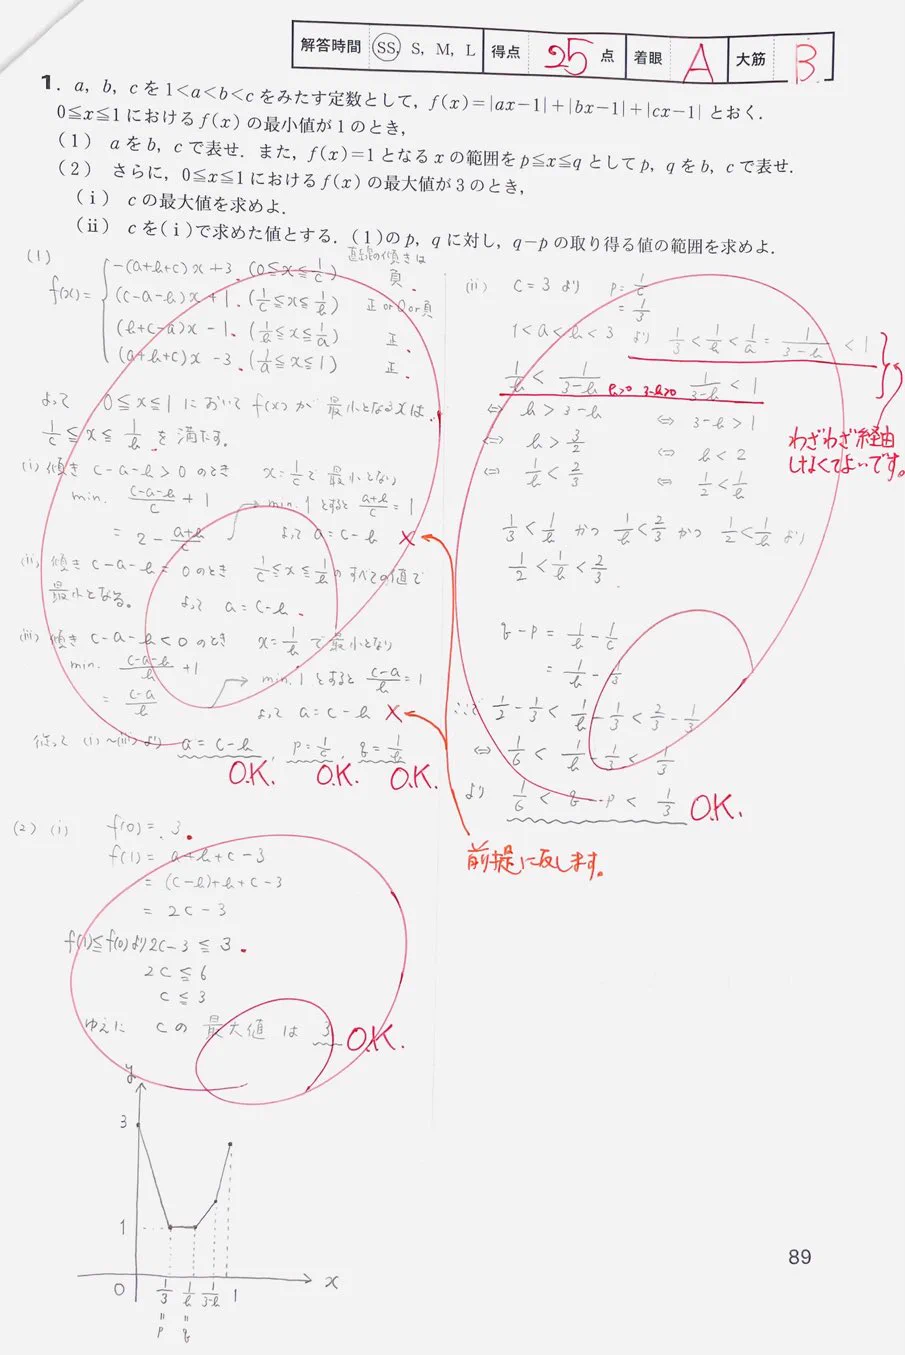 解答時間 SS, S, M, L 得点 25 点 着眼 A 大筋 B
1. a, b, c を 1<a<b<c をみたす定数として, f(x)=|ax-1|+|bx-1|+|cx-1| とおく.
0≦x≦1 における f(x) の最小値が1のとき,
(1) a を b, c で表せ. また, f(x)=1 となる x の範囲を p≦x≦q として p, q を b, c で表せ.
(2) さらに, 0≦x≦1 における f(x) の最大値が3のとき,
(i) c の最大値を求めよ.
(ii) c を(i)で求めた値とする. (1)の p, q に対し, q-p の取り得る値の範囲を求めよ.
(1)
直線の傾きは
f(x)= { -(a+b+c)x+3. (0≦x≦1/c) 負.
(c-a-b)x+1. (1/c≦x≦1/b) 正or0or負
(b+c-a)x-1. (1/b≦x≦1/a) 正.
(a+b+c)x-3. (1/a≦x≦1) 正.
よって 0≦x≦1 において f(x) が 最小となるxは.
1/c≦x≦1/b を満たす。
(i) 傾き c-a-b>0 のとき x=1/c で 最小となり
min. (c-a-b)/c +1
= 2-(a+b)/c → min.1とすると (a+b)/c=1
よって a=c-b ×
(ii) 傾き c-a-b=0のとき 1/c≦x≦1/b のすべての値で
最小となる。 よって a=c-b.
(iii) 傾き c-a-b<0 のとき x=1/b で最小となり
min. (c-a-b)/b +1
= (c-a)/b → min.1とすると (c-a)/b=1
よって a=c-b ×
従って (i)~(iii)より a=c-b, p=1/c, q=1/b
O.K. O.K. O.K.
前提に反します。
(2) (i) f(0)=3.
f(1)= a+b+c-3
= (c-b)+b+c-3
= 2c-3
f(1)≦f(0)より2c-3≦3.
2c≦6
c≦3
ゆえに cの 最大値 は 3 O.K.
y
3
1
0 1/3 1/b 1/(3-b) 1 x
" "
p q
(ii) c=3 より p=1/c
=1/3
1<a<b<3 より 1/3<1/b<1/a=1/(3-b)<1
1/b<1/(3-b) b>0 3-b>0 1/(3-b)<1
⇔ b>3-b ⇔ 3-b>1
⇔ b>3/2 ⇔ b<2
⇔ 1/b<2/3 ⇔ 1/2<1/b
わざわざ経由
しなくてよいです。
1/3<1/b かつ 1/b<2/3 かつ 1/2<1/b より
1/2<1/b<2/3.
q-p = 1/b-1/c
= 1/b-1/3
ここで 1/2-1/3<1/b-1/3<2/3-1/3
⇔ 1/6<1/b-1/3<1/3
より 1/6<q-p<1/3 O.K.
89